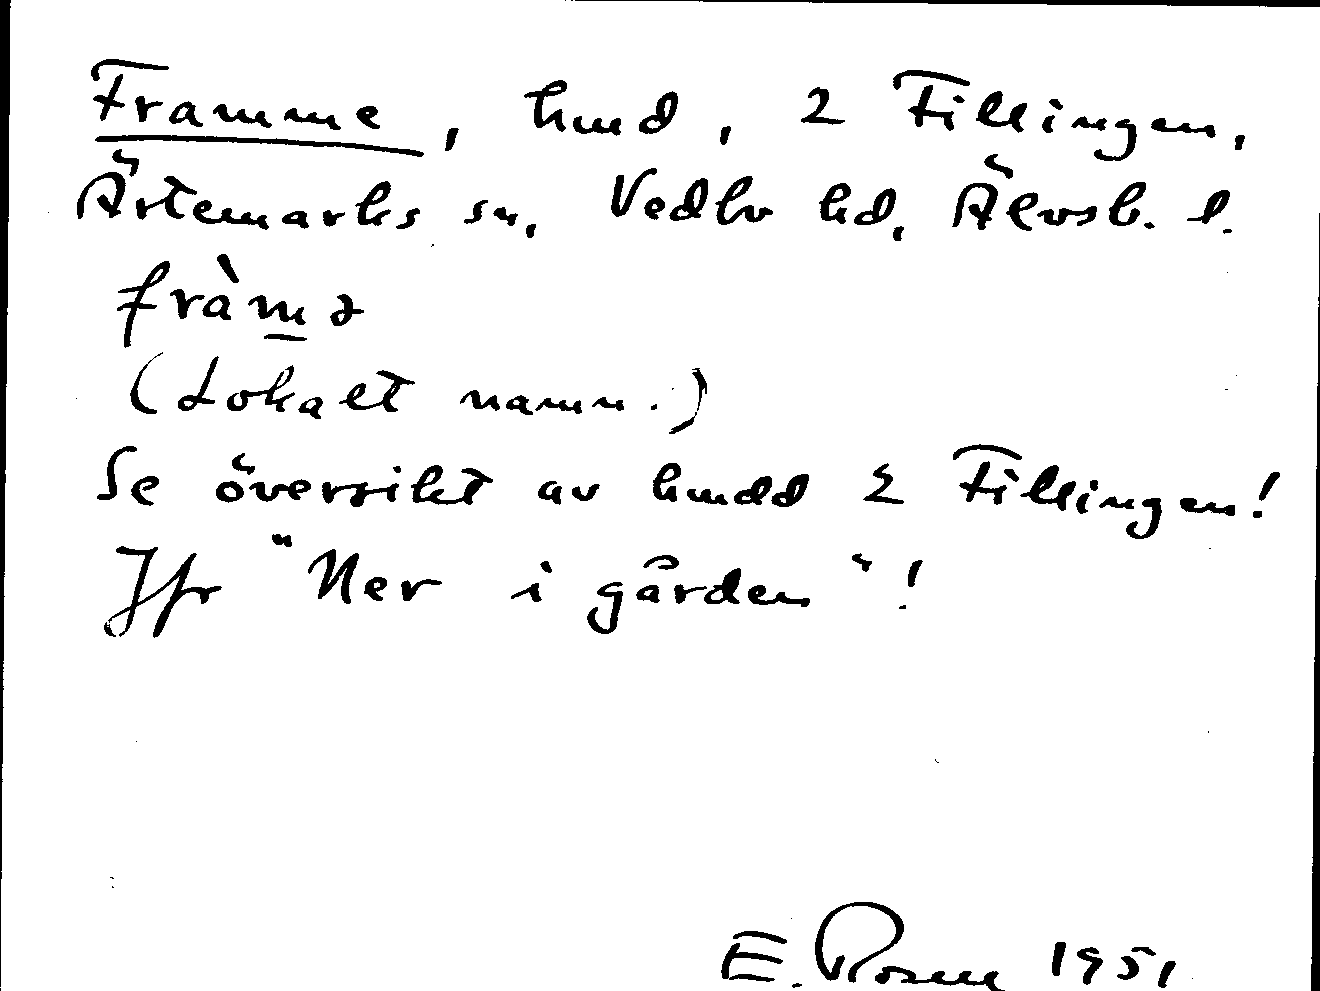 Framme, hmd, 2 Fillingen,
Ärtemarks sn, Vedbo hd, Älvsb. l.
fràm̲ə
(Lokalt namn.)
Se översikt av hmdd 2 Fillingen!
Jfr "Ner i gården"!
E. Rosen 1951